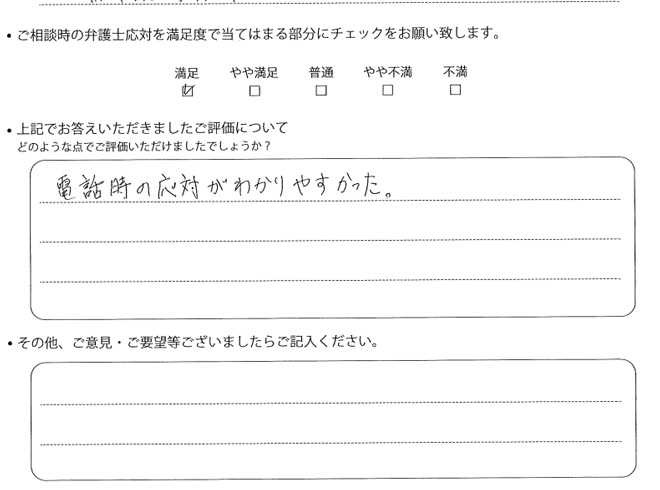 • ご相談時の弁護士応対を満足度で当てはまる部分にチェックをお願い致します。
満足 やや満足 普通 やや不満 不満
☑ □ □ □ □
• 上記でお答えいただきましたご評価について
どのような点でご評価いただけましたでしょうか？
電話時の応対がわかりやすかった。
• その他、ご意見・ご要望等ございましたらご記入ください。